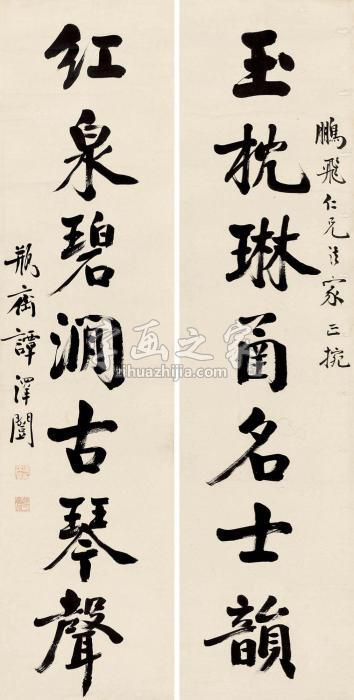 鵬飛仁兄法家正捥
玉枕琳菌名士韻
红泉碧澗古琴聲
瓶齋譚澤闓
书画之家
shihuazhijia.com